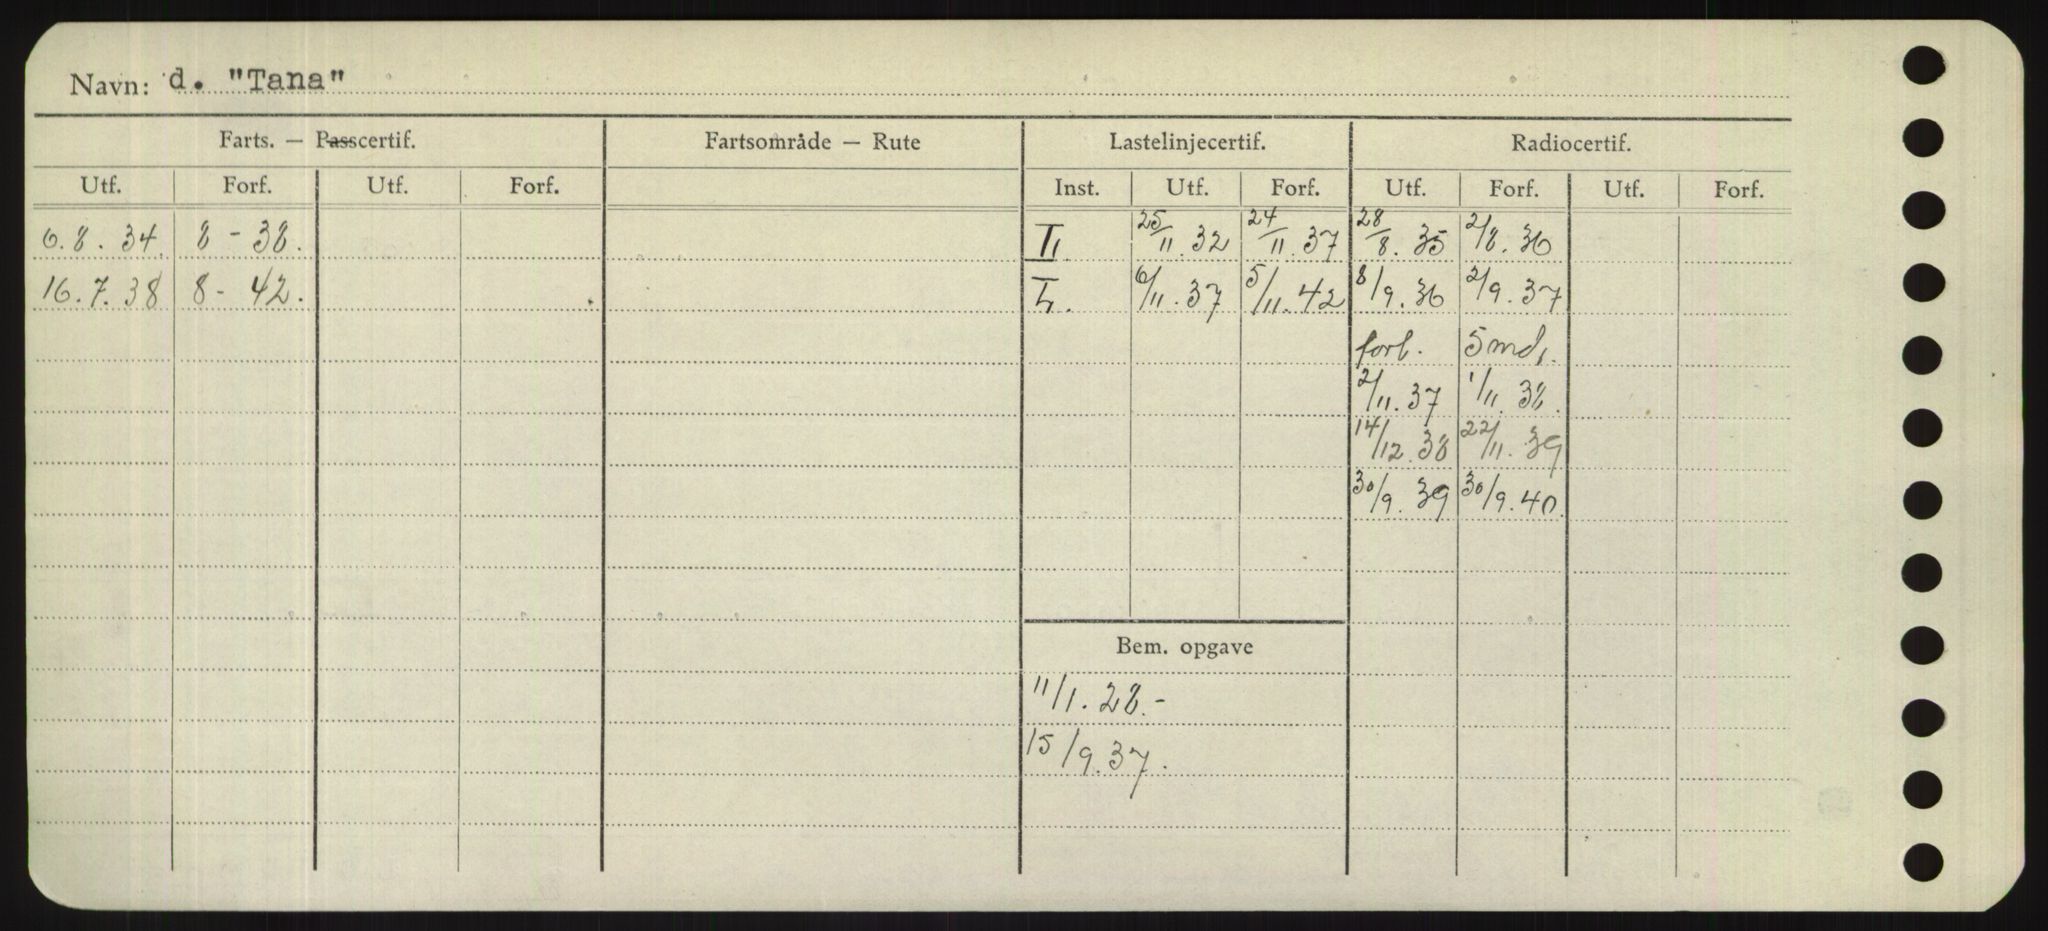 Navn: d. "Tana"
Farts. — Passcertif. Fartsområde — Rute Lastelinjecertif. Radiocertif.
Utf. Forf. Utf. Forf. Inst. Utf. Forf. Utf. Forf. Utf. Forf.
6.8.34. 8 - 38. 25/11.32 24/11.37 28/8.35 2/8.36
16.7.38 8 - 42. 6/11.37 5/11.42 8/9.36 2/9.37
forl. 5 md,.
2/11.37 1/11.38.
14/12.38 22/11.39
30/9.39 30/9.40.
Bem. opgave
11/1.28.-
15/9.37.